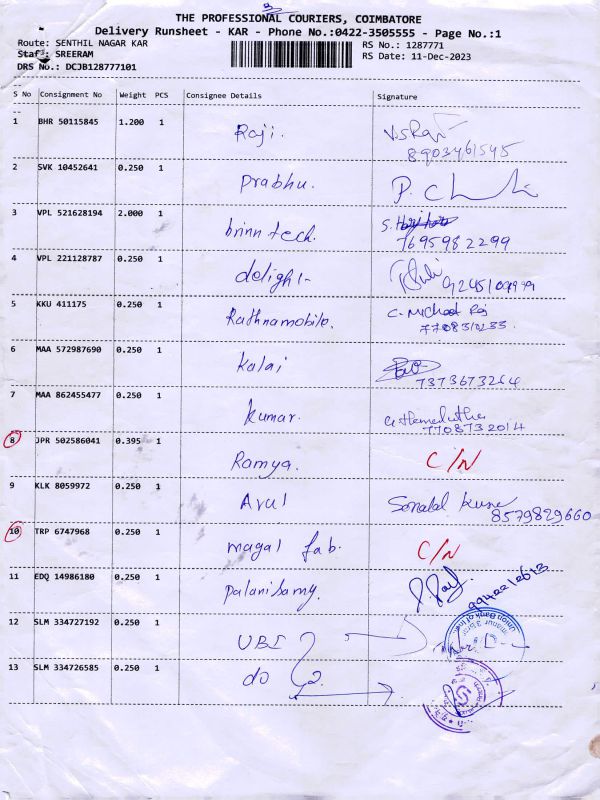 THE PROFESSIONAL COURIERS, COIMBATORE
Delivery Runsheet - KAR - Phone No.:0422-3505555 - Page No.:1
Route: SENTHIL NAGAR KAR
RS No.: 1287771
Staff: SREERAM
RS Date: 11-Dec-2023
DRS No.: DCJB128777101
S No Consignment No Weight PCS Consignee Details Signature
1 BHR 50115845 1.200 1 Raji.
8903461545
2 SVK 10452641 0.250 1 Prabhu.
3 VPL 521628194 2.000 1 brinn tech. S.
7695982299
4 VPL 221128787 0.250 1 delight
5 KKU 411175 0.250 1 Rathnamobile. C. Michael Raj
6 MAA 572987690 0.250 1 Kalai
7373673264
7 MAA 862455477 0.250 1 Kumar.
7708732014
8 JPR 502586041 0.395 1 Ramya. C/N
9 KLK 8059972 0.250 1 Arul
8579829660
10 TRP 6747968 0.250 1 magal fab. C/N
11 EDQ 14986180 0.250 1 Palanisamy.
12 SLM 334727192 0.250 1 UBI
13 SLM 334726585 0.250 1 do